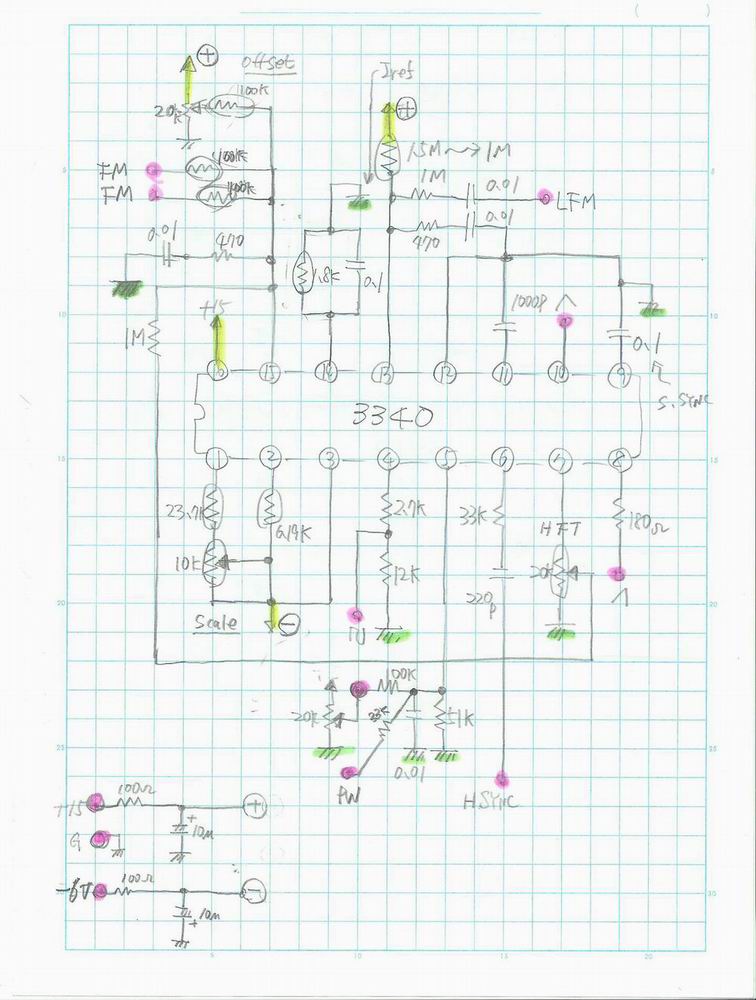 ( )
+
Offset
Iref
20K
100K
+
1.5M → 1M
FM
100K
1M
0.01
FM
100K
LFM
0.01
470
470
0.01
1.8K
0.1
+15
1000P
1M
0.1
16
15
14
13
12
11
10
9
S.SYNC
3340
1
2
3
4
5
6
7
8
23.7K
6.19K
2.7K
33K
HFT
180Ω
10K
12K
20K
220p
Scale
-
100K
20K
33K
51K
0.01
PW
HSYNC
+15
100Ω
+
+
10μ
G
-5V
100Ω
-
10μ
+
5
10
15
20
25
30
5
10
15
20